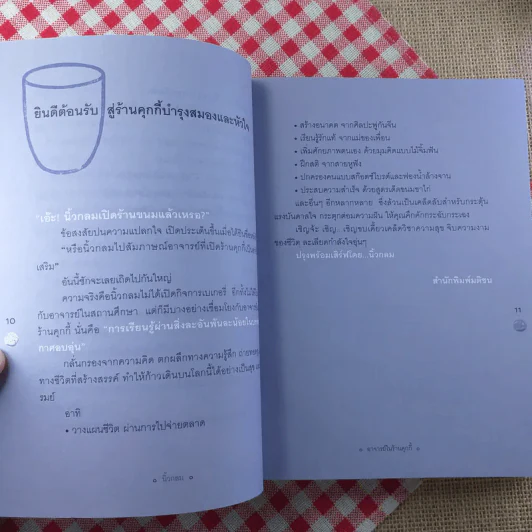 ยินดีต้อนรับ สู่ร้านคุกกี้บำรุงสมองและหัวใจ
"เอ๊ะ! นิ้วกลมเปิดร้านขนมแล้วเหรอ?"
ข้อสงสัยปนความแปลกใจ เปิดประเด็นขึ้นเมื่อได้ยินชื่อ
"หรือนิ้วกลมไปสัมภาษณ์อาจารย์ที่เปิดร้านคุกกี้เป็น
เสริม"
อันนี้ชักจะเลยเถิดไปกันใหญ่
ความจริงคือนิ้วกลมไม่ได้เปิดกิจการเบเกอรี่ อีกทั้งไม่ได้
กับอาจารย์ในสถานศึกษา แต่ก็มีบางอย่างเชื่อมโยงกับอาจารย์
ร้านคุกกี้ นั่นคือ "การเรียนรู้ผ่านสิ่งละอันพันละน้อยใน
กาศอบอุ่น"
กลั่นกรองจากความคิด ตกผลึกทางความรู้สึก
ทางชีวิตที่สร้างสรรค์ ทำให้ก้าวเดินบนโลกนี้ได้อย่างเป็นสุข
รมย์
อาทิ
• วางแผนชีวิต ผ่านการไปจ่ายตลาด
10
นิ้วกลม
• สร้างอนาคต จากศิลปะพู่กันจีน
• เรียนรู้รักแท้ จากแม่ของเพื่อน
• เพิ่มศักยภาพตนเอง ด้วยมุมคิดแบบไม้จิ้มฟัน
• ฝึกสติ จากสายหูฟัง
• ปกครองคนแบบสก๊อตช์ไบรต์และฟองน้ำล้างจาน
• ประสบความสำเร็จ ด้วยสูตรเด็ดขนมเขาไก่
และอื่นๆ อีกหลากหลาย ซึ่งล้วนเป็นเคล็ดลับสำหรับกระตุ้น
แรงบันดาลใจ กระตุกต่อมความฝัน ให้คุณคึกคักกระฉับกระเฉง
เชิญจ้ะ เชิญ.. เชิญขบเคี้ยวเคล็ดวิชาความสุข จิบความงาม
ของชีวิต ละเลียดกำลังใจอุ่นๆ
ปรุงพร้อมเสิร์ฟโดย...นิ้วกลม
สำนักพิมพ์มติชน
11
อาจารย์ในร้านคุกกี้